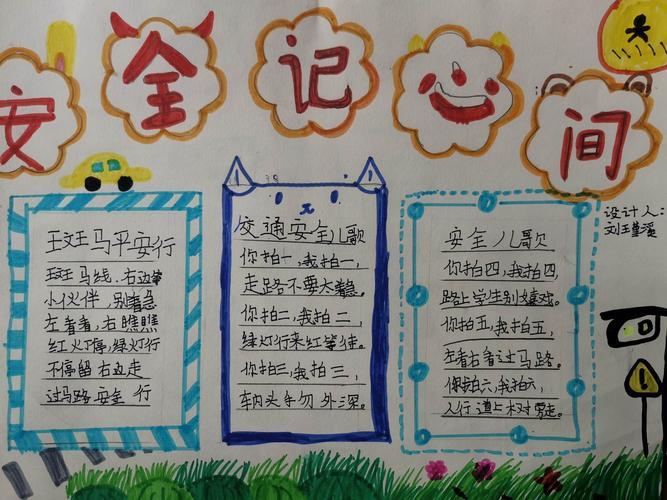 安全记心间
斑马平安行
斑马线、右边
小伙伴,别着急
左看看,右瞧瞧
红灯停,绿灯行
不停留右边走
过马路安全 行
交通安全儿歌
你拍一,我拍一,
走路不要太着急。
你拍二,我拍二,
绿灯行来红等待。
你拍三,我拍三,
车内头手勿外深。
安全儿歌
你拍四,我拍四,
路上学生别嬉戏。
你拍五,我拍五,
左看右看过马路。
你拍六,我拍六,
人行道上 走。
设计人:
刘